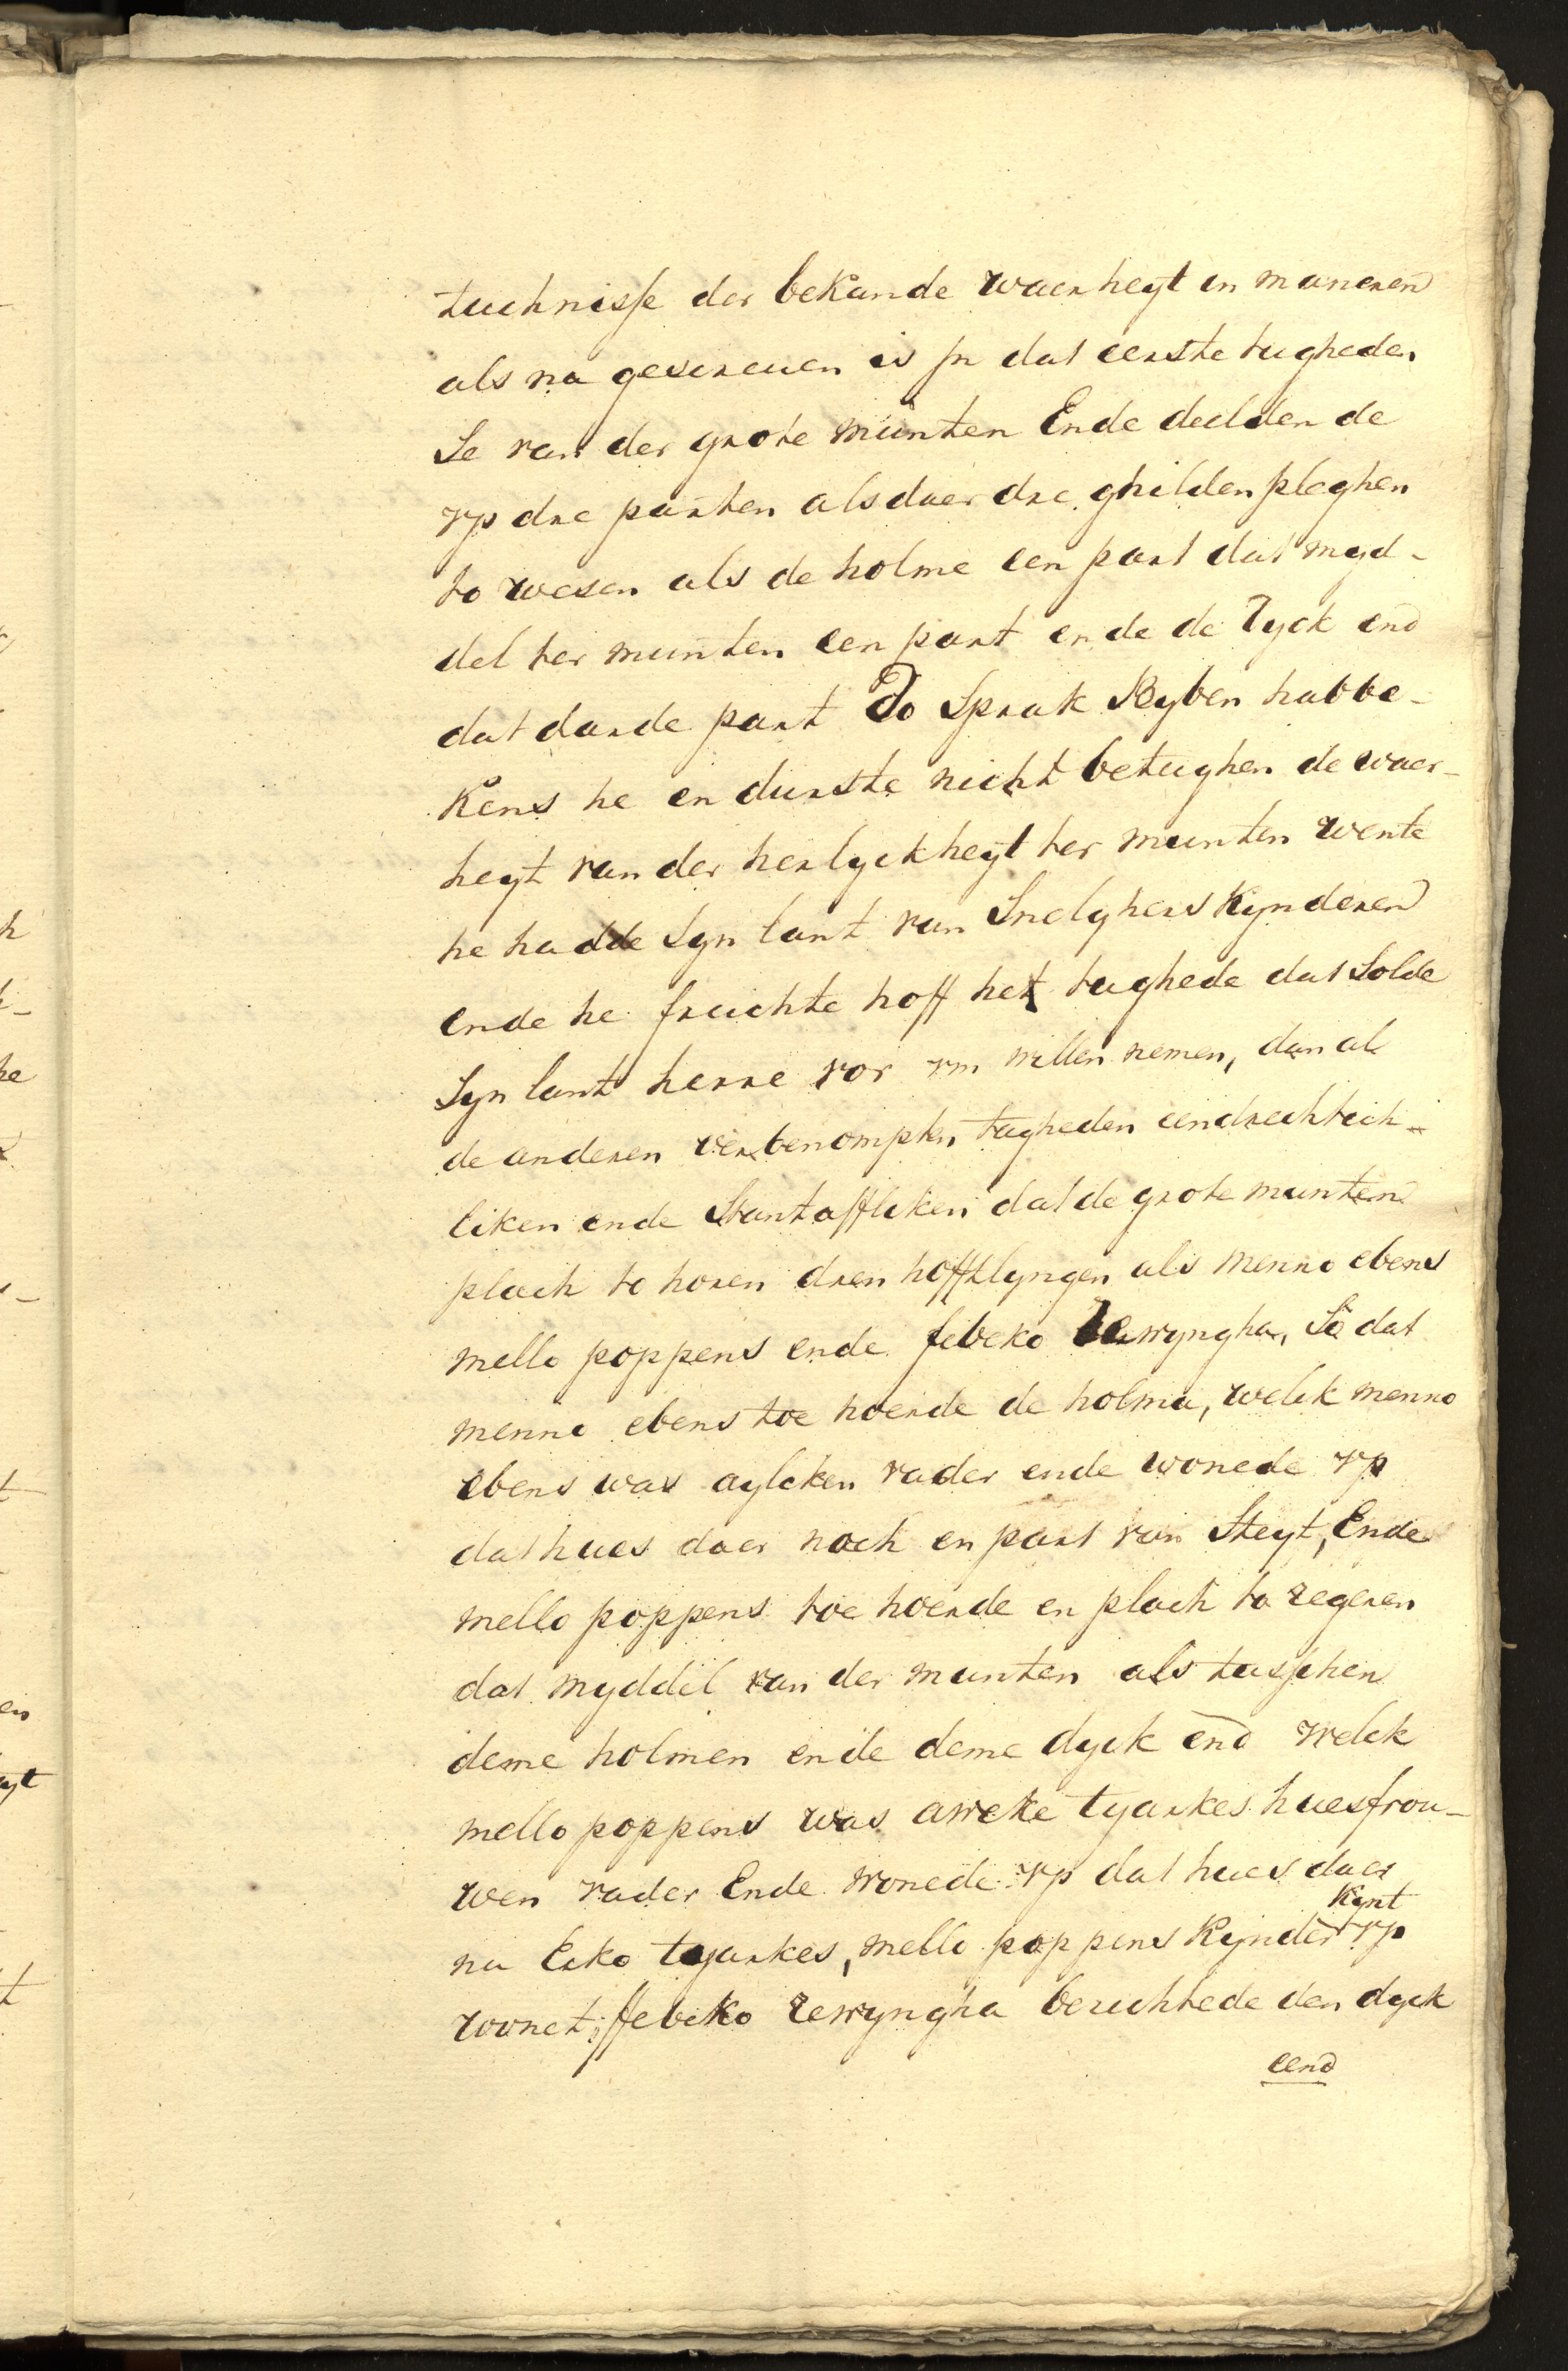 tuchnisse der bekande waerheyt en maneren
als na gescreuen is jn dat eerste tugheden
Se van der grote munten Ende deelden de
vp dre parten als daer dre ghilden pleghen
to wesen als de holme een part dat myd-
del ter munten een part ende de Dyck end
dat darde part Do Sprak Reyben habbe-
kens he en durste nicht betughen de waer-
heyt van der herlyckheyt ter munten wente
he hadde Syn lant van Snelghers Kynderen
ende he fruchte hoff het tughede dat Solde
Syn lant herre vor vm willen nemen, dan al
de anderen verbenompten tugheden eendrechtich-
liken ende Stantaffliken dat de grote munten
plach to horen dren hofflyngen als menno ebens
mello poppens ende febeko rewyngha, So dat
menno ebens toe hoerde de holma, welck menno
ebens was aylcken vader ende wonede vp
dat hues daer noch en part van Steyt, Ende
mello poppens toe hoerde en plach to regeren
dat myddel van der munten als tusschen
deme holmen ende deme dyck end welck
mello poppens was aweke tyarkes huesfrou-
wen vader Ende wonede vp dat hues daer
nu Eeko tyarkes, mello poppens Kynder Kynt vp
wonet, ffebeko rewyngha beruchtede den dyck
eend